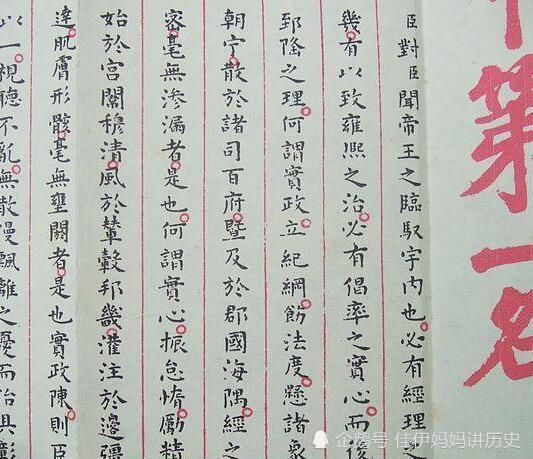 第一名
臣對臣聞帝王之臨馭宇内也必有經理之
幾有以致雍熙之治必有倡率之實心而後
郅隆之理何謂實政立紀綱飭法度懸諸象
朝宁散於諸司百府暨及於郡國海隅經之
密毫無滲漏者是也何謂實心振怠惰勵精
始於宮闈穆清風於輦轂邦畿灌注於邊疆
達肌膚形骸毫無壅閼者是也實政陳則臣
以一視聽不亂無散漫飄離之憂而治具彰
企鹅号 佳伊妈妈讲历史